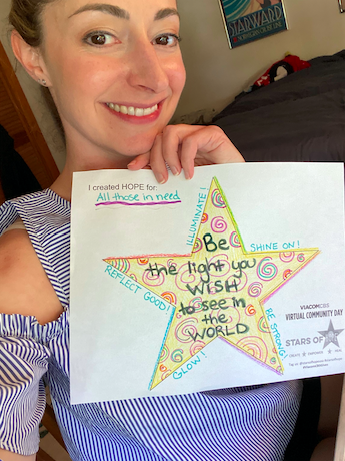 STARWARD
I created HOPE for:
All those in need
ILLUMINATE!
SHINE ON!
Be
the light you
WISH
to see in
the
WORLD
REFLECT GOOD!
BE STRONG!
GLOW!
VIACOMCBS
VIRTUAL COMMUNITY DAY
STARS OF